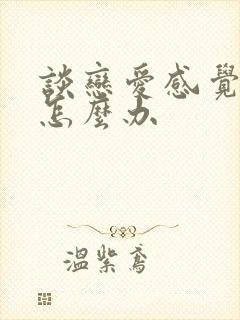 談戀愛感覺
怎麼办
溫紫鳶